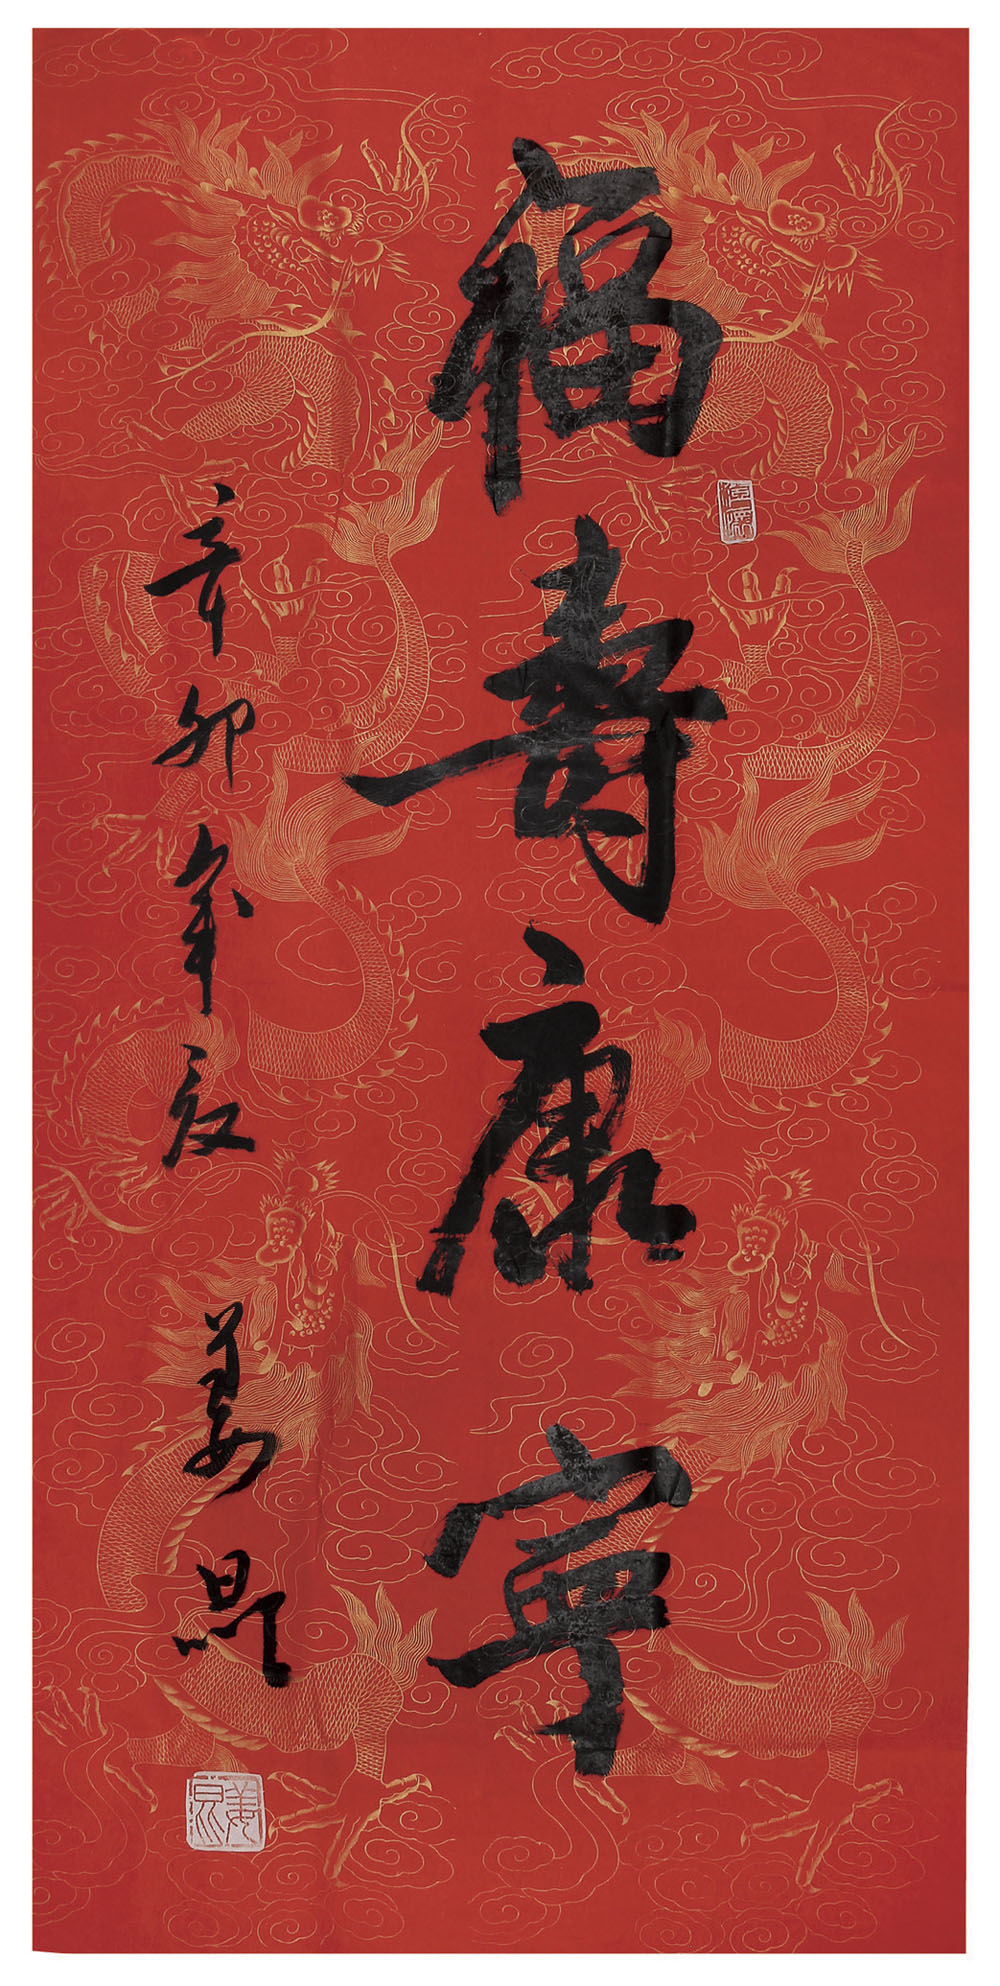 福壽康寧
辛卯年夏 姜昆
姜昆